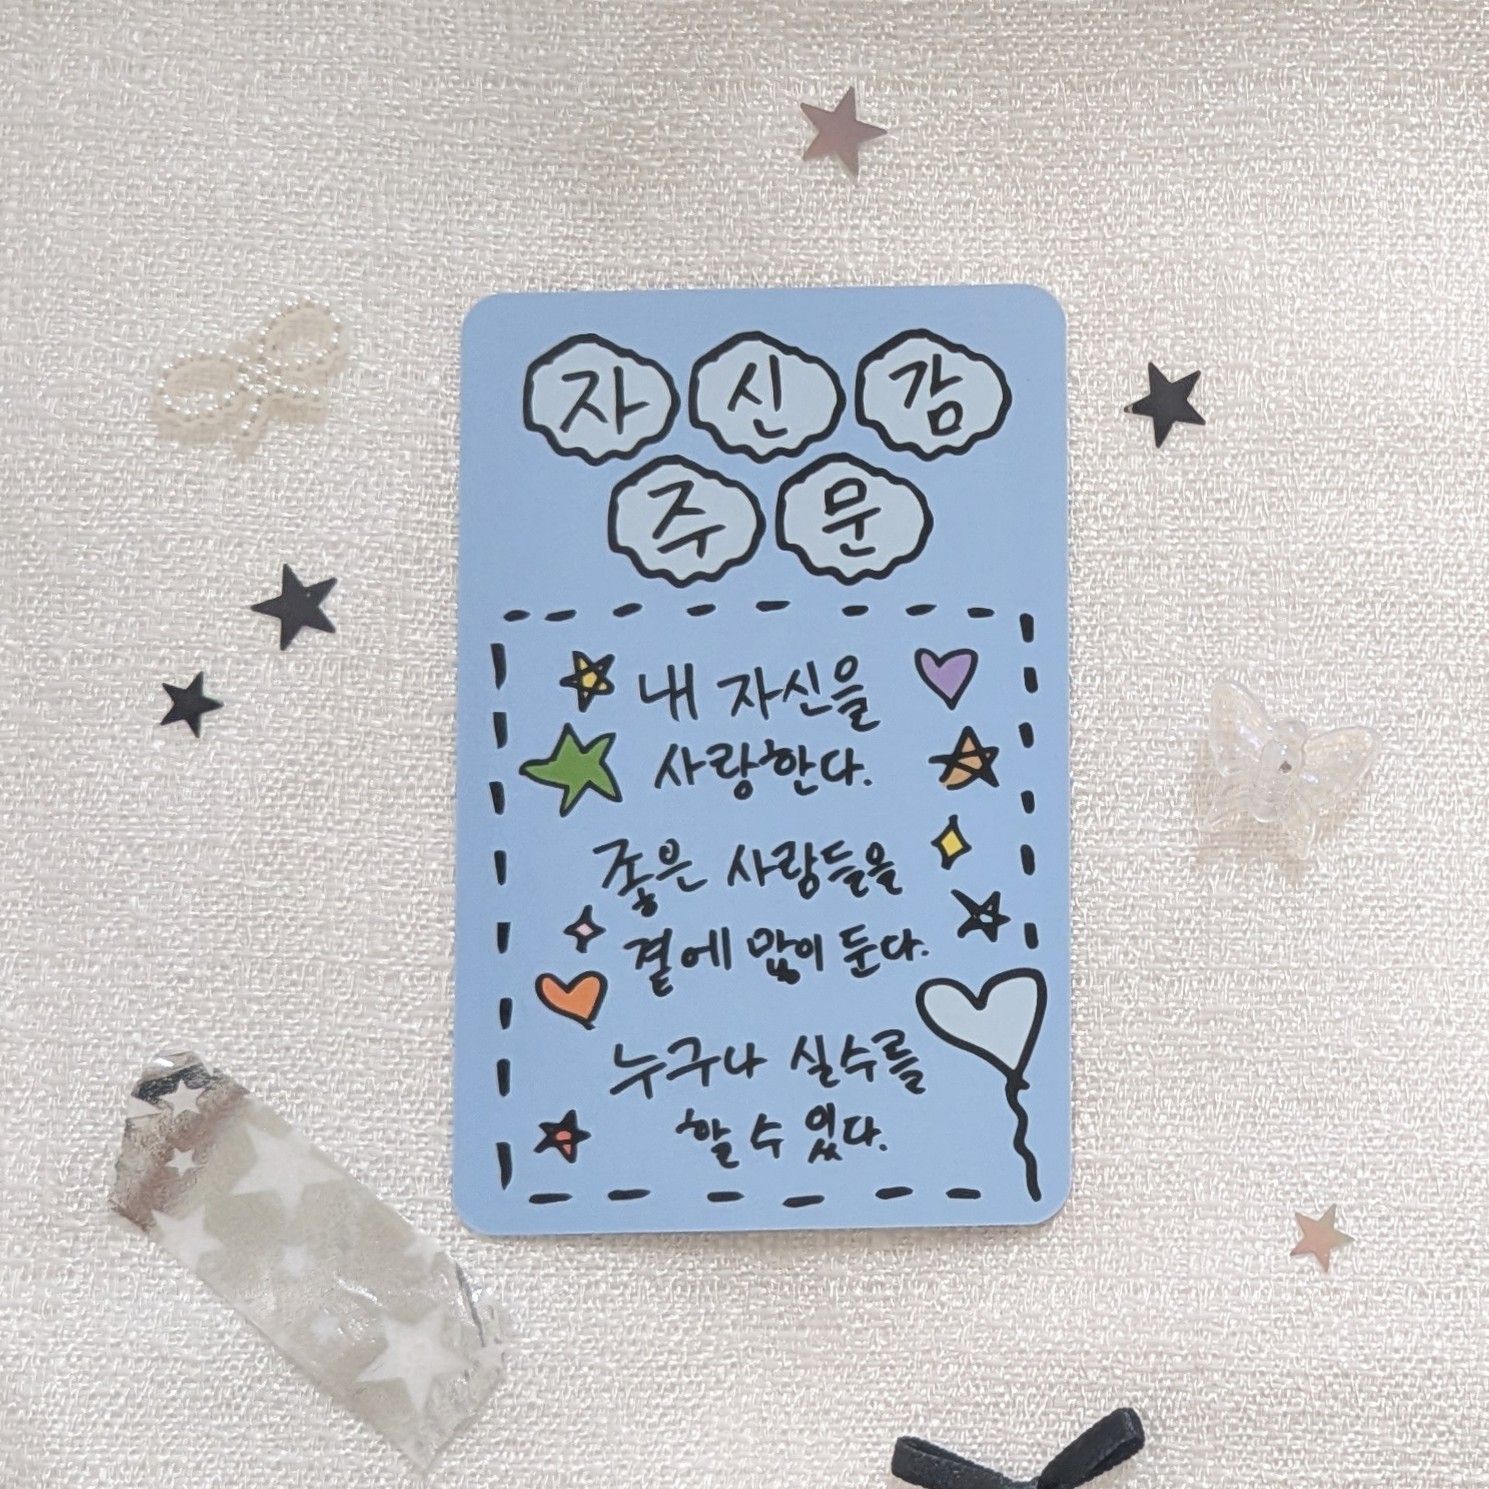 자신감
주문
내 자신을
사랑한다.
좋은 사람들을
곁에 많이 둔다.
누구나 실수를
할 수 있다.